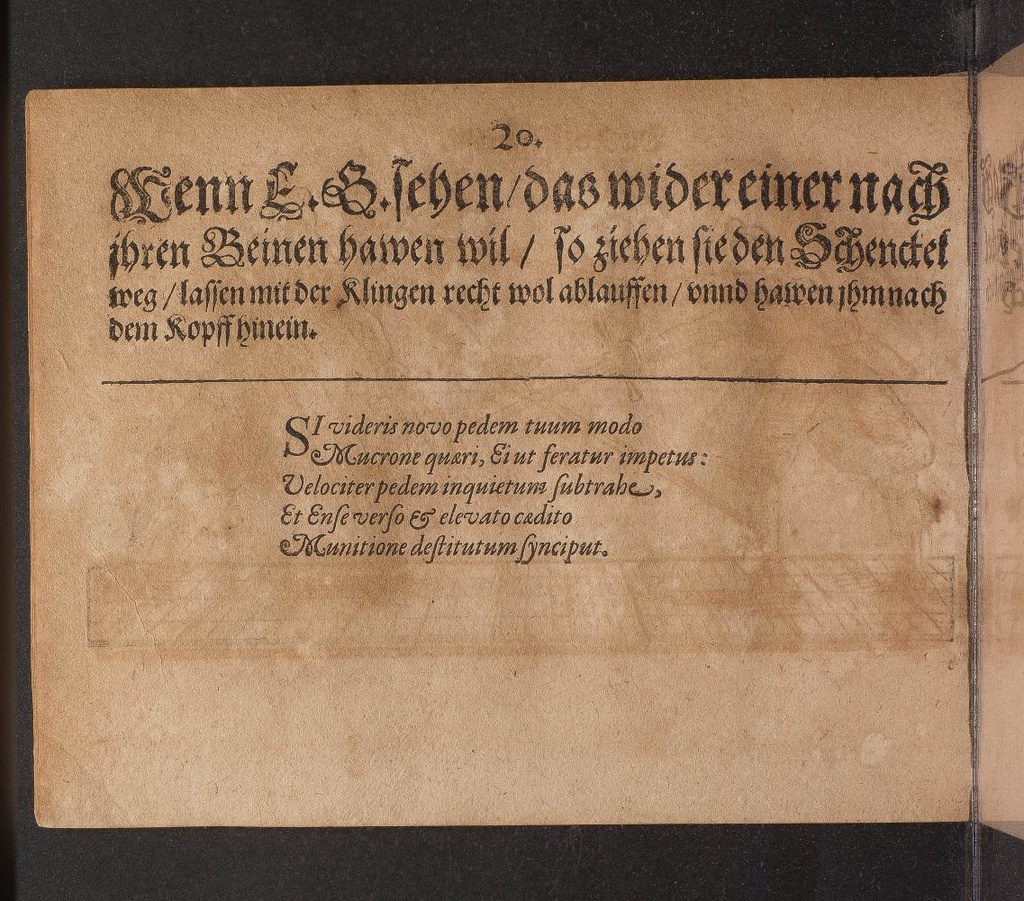 20.
Wenn E. G. sehen / das wider einer nach
jhren Beinen hawen wil / so ziehen sie den Schenckel
weg / lassen mit der Klingen recht wol ablauffen / vnnd hawen jhm nach
dem Kopff hinein.
SI videris novo pedem tuum modo
Mucrone quæri, Ei ut feratur impetus:
Velociter pedem inquietum ſubtrahe,
Et Enſe verſo & elevato cædito
Munitione deſtitutum ſynciput.